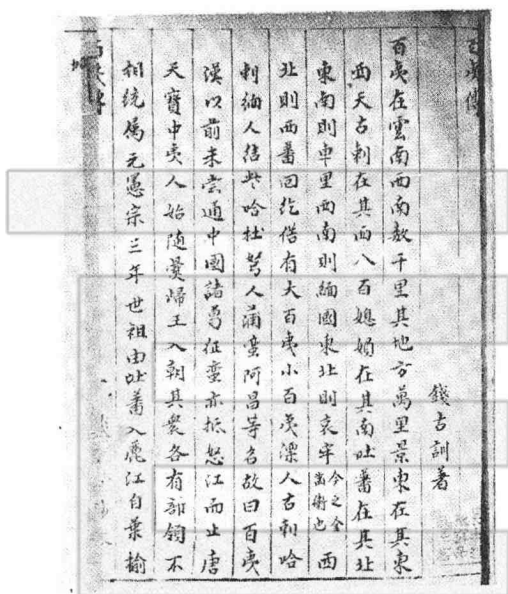 百夷傳
錢古訓著
百夷在雲南西南數千里其地方萬里景東在其東
西天古剌在其西八百媳婦在其南吐蕃在其北
東南則車里西南則緬國東北則哀牢今之金齒衛也西
北則西蕃回紇偕有大百夷小百夷漂人古剌哈
剌緬人結些哈杜弩人蒲蠻阿昌等名故曰百夷
漢以前未嘗通中國諸葛征蠻亦抵怒江而止唐
天寶中夷人始隨爨歸王入朝其衆各有部領不
相統屬元憲宗三年世祖由吐蕃入麗江自葉榆